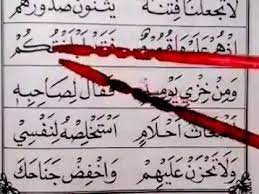 لَا تَجْعَلْنَا فِتْنَةً يَثْنُونَ صُدُورَهُمْ
وَمِنْ خِزْيِ يَوْمِئِذٍ فَقَالَ لِصَاحِبِهِ
أَضْغَاثُ أَحْلَامٍ أَسْتَخْلِصْهُ لِنَفْسِي
وَلَا تَحْزَنْ عَلَيْهِمْ وَاخْفِضْ جَنَاحَكَ